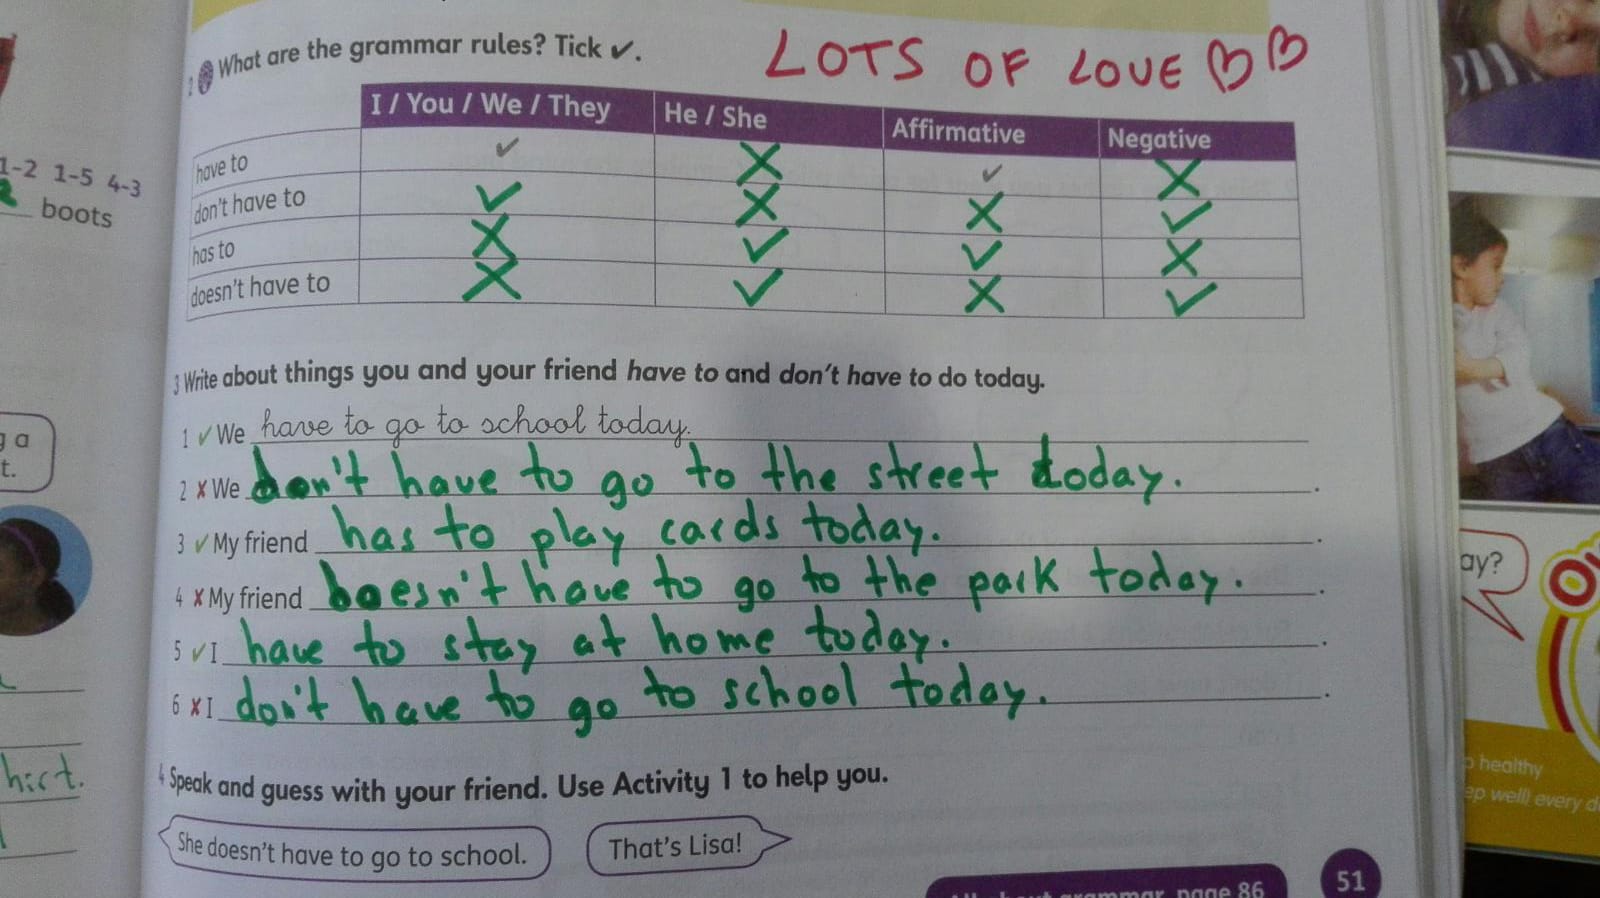 2 What are the grammar rules? Tick ✔.
LOTS OF LOVE ♡♡
I / You / We / They He / She Affirmative Negative
have to ✔ X ✔ X
don't have to ✔ X X ✔
has to X ✔ ✔ X
doesn't have to X ✔ X ✔
1-2 1-5 4-3
boots
3 Write about things you and your friend have to and don't have to do today.
1 ✓ We have to go to school today.
2 ✗ We don't have to go to the street today. .
3 ✓ My friend has to play cards today. .
4 ✗ My friend doesn't have to go to the park today. .
5 ✓ I have to stay at home today. .
6 ✗ I don't have to go to school today. .
g a
t.
hirt.
4 Speak and guess with your friend. Use Activity 1 to help you.
She doesn't have to go to school.
That's Lisa!
grammar, page 86
51
ay?
healthy
ep well) every d